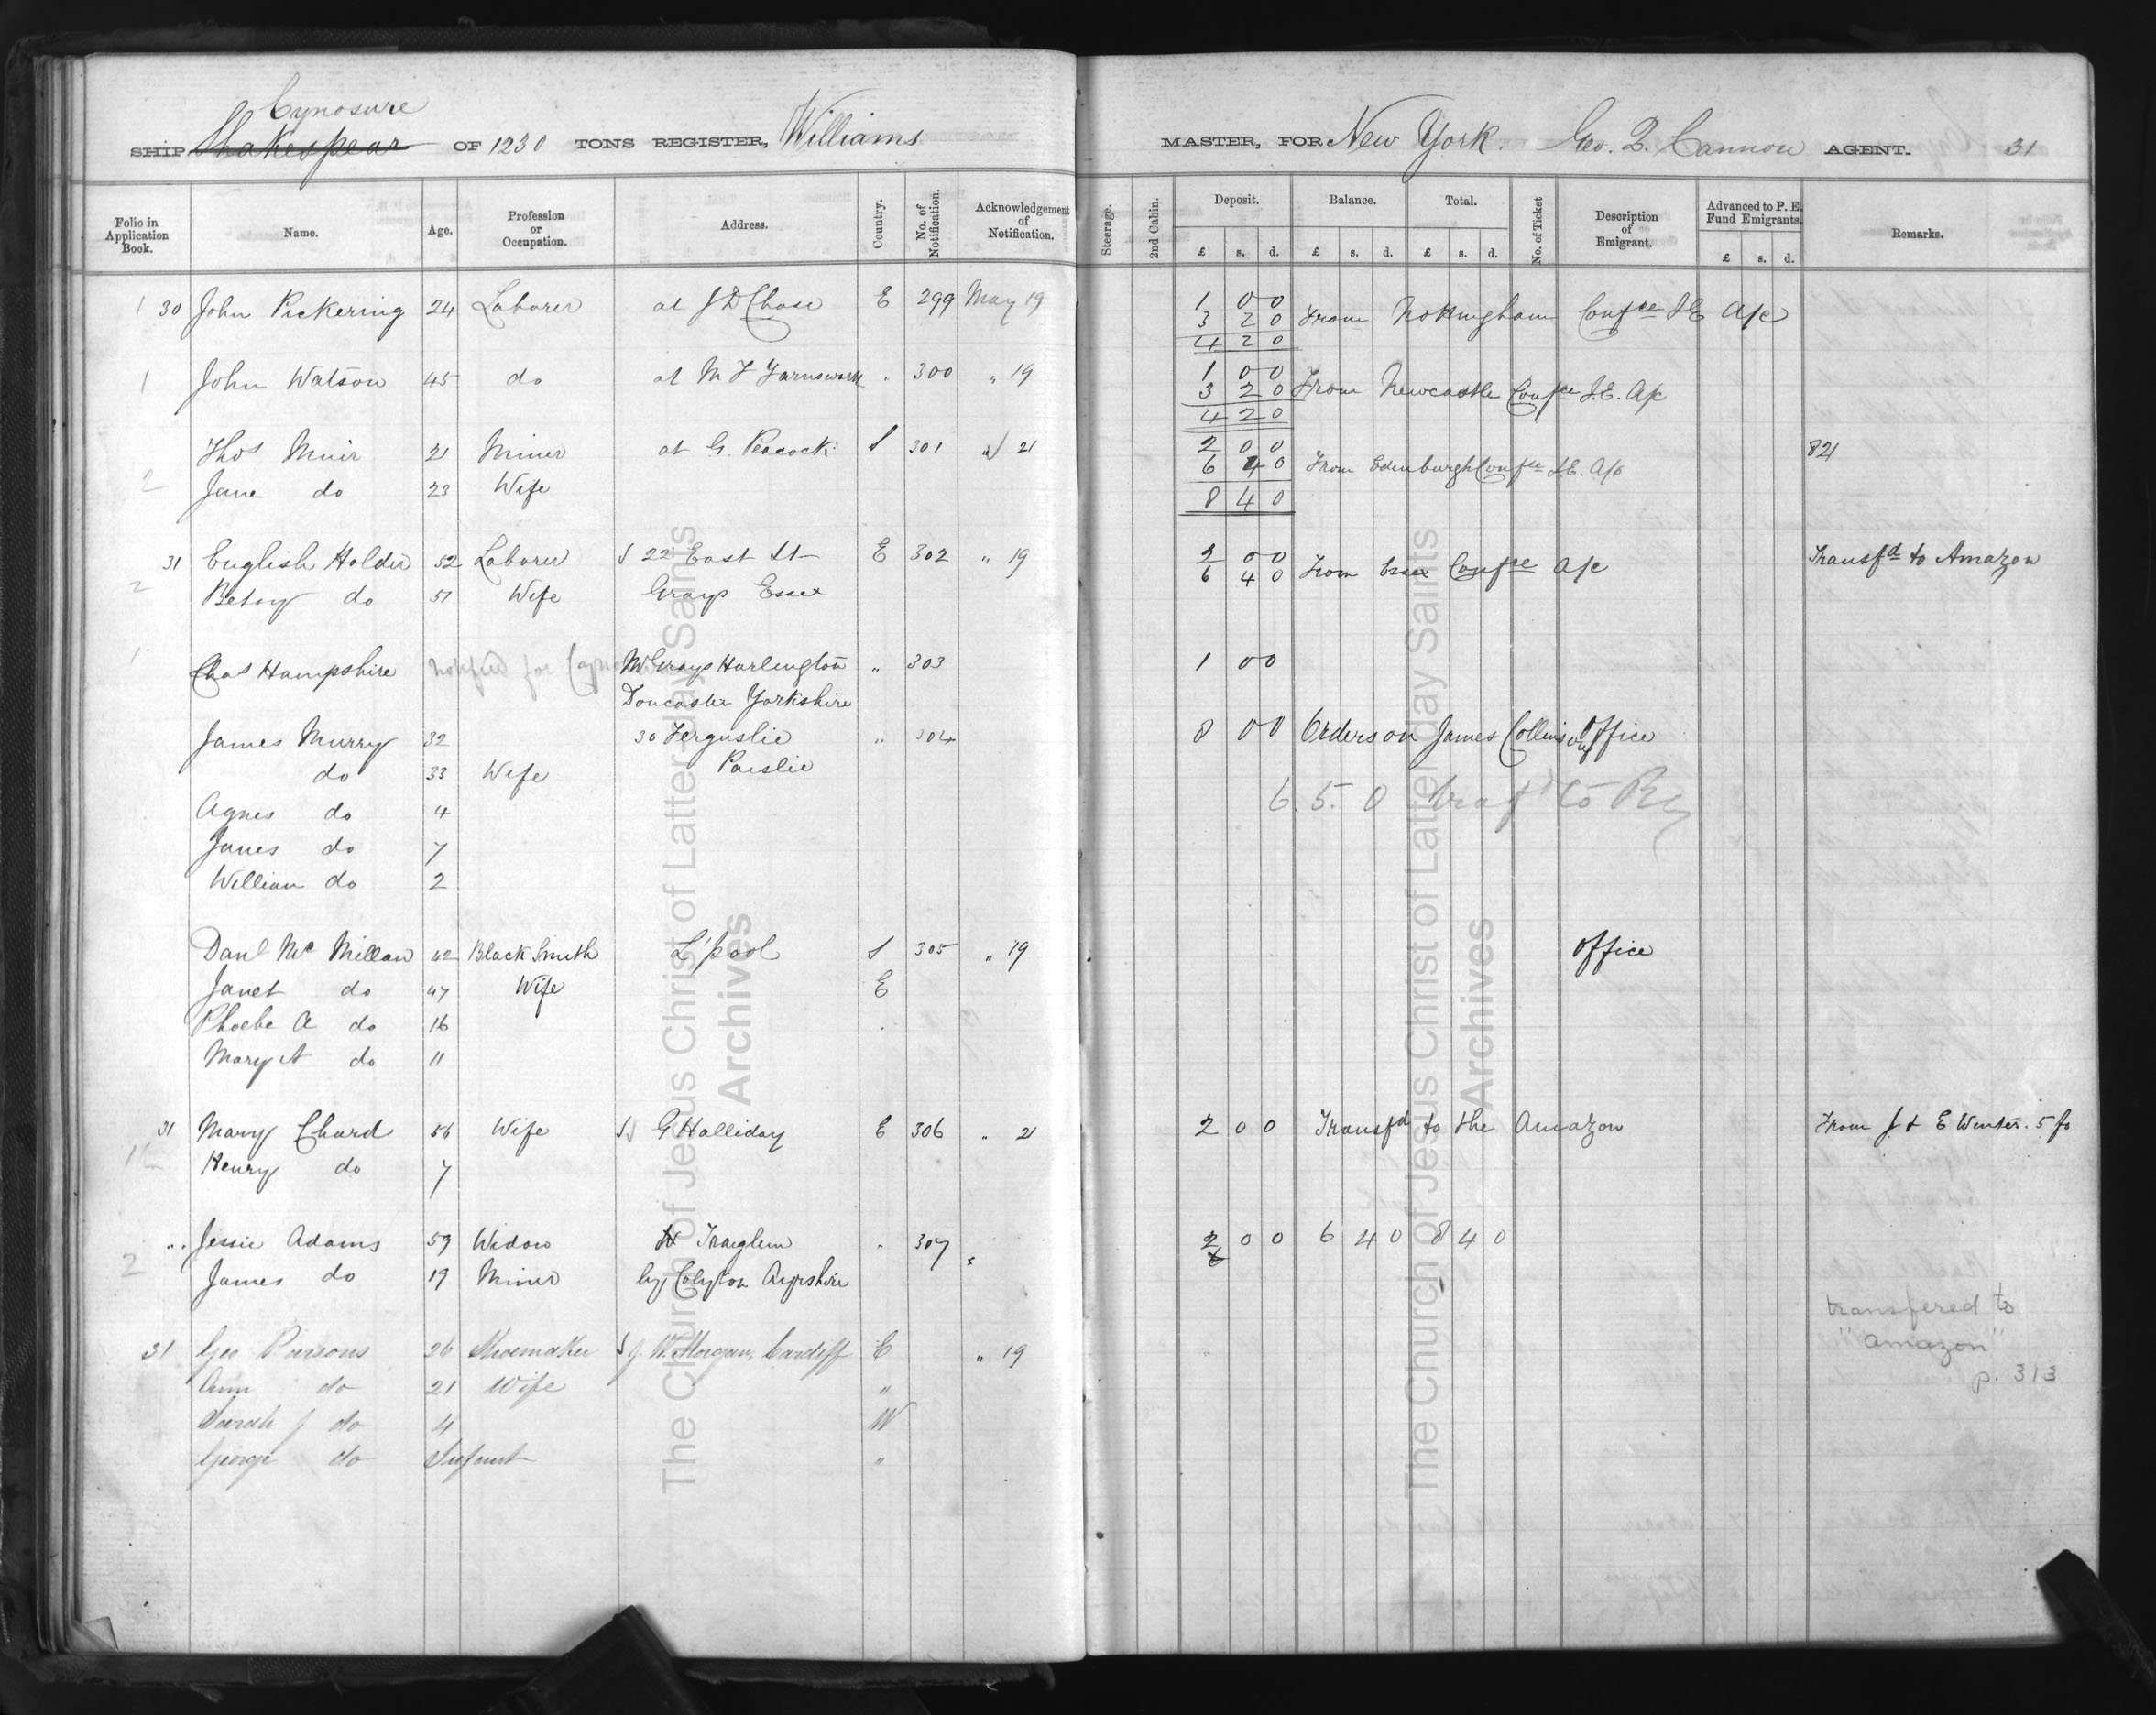 Cynosure
SHIP Shakespear OF 1230 TONS REGISTER, Williams MASTER, FOR New York. Geo. Q. Cannon AGENT. 31
Folio in Application Book. Name. Age. Profession or Occupation. Address. Country. No. of Notification. Acknowledgement of Notification. Steerage. 2nd Cabin. Deposit. £ s. d. Balance. £ s. d. Total. £ s. d. No. of Ticket Description of Emigrant. Advanced to P. E. Fund Emigrants. £ s. d. Remarks.
1 30 John Pickering 24 Laborer at J D Chase E 299 May 19 1 0 0
3 2 0 From Nottingham Confce I E A/c
4 2 0
1 John Watson 45 do at M F Farnsworth . 300 " 19 1 0 0
3 2 0 From Newcastle Confce I.E. A/c
4 2 0
Thos Muir 21 Miner at G. Peacock S 301 " 21 2 0 0 821
6 4 0 From Edinburgh Confce I.E. A/c
2 Jane do 23 Wife 8 4 0
31 English Holder 52 Laborer S 22 East St E 302 " 19 2 0 0 Transfd to Amazon
6 4 0 From Essex Confce A/c
2 Betsy do 51 Wife Grays Essex
1 Chas Hampshire notified for Mr Grays Harlington " 303 1 0 0
Doncaster Yorkshire
James Murry 32 30 Ferguslie " 304 8 0 0 Orders on James Collins Office
do 33 Wife Paislie
6. 5. 0
Agnes do 4
James do 7
William do 2
Danl Mc Millan 42 Black Smith L'pool S 305 " 19 Office
Janet do 47 Wife E
Phoebe A do 16 .
Mary A do 11
31 Mary Chard 56 Wife G Halliday E 306 " 21 2 0 0 Transfd to the Amazon From J & E Winter. 5 fo
Henry do 7
" Jessie Adams 59 Widow . 307 2 0 0 6 4 0 8 4 0
2 James do 19 Miner by Colyton Ayrshire
transfered to
"Amazon"
p. 313
31 Geo Parsons 26 Shoemaker S J. W. Morgan, Cardiff E " 19
Ann do 21 Wife "
Sarah J do 4 W
George do Infant "
The Church of Jesus Christ of Latter-day Saints
Archives
The Church of Jesus Christ of Latter-day Saints
Archives